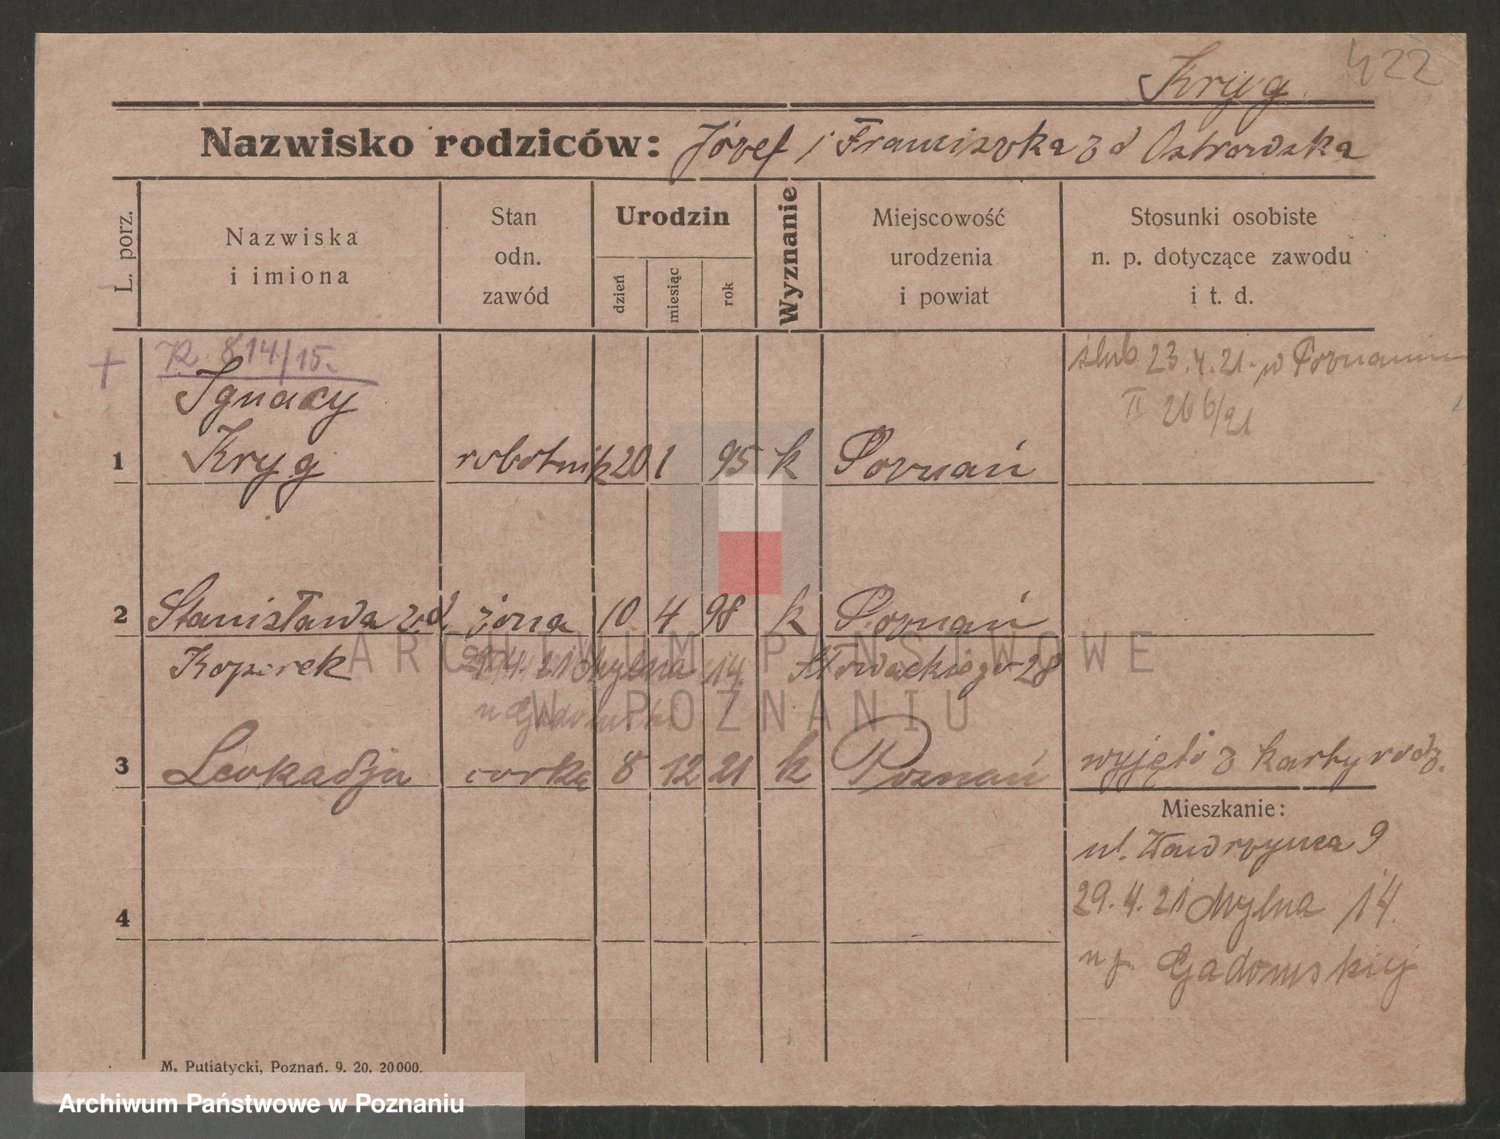 422
Kryg
Nazwisko rodziców: Józef i Franciszka z d Ostrowska
L. porz.
Nazwiska
i imiona
Stan
odn.
zawód
Urodzin
dzień
miesiąc
rok
Wyznanie
Miejscowość
urodzenia
i powiat
Stosunki osobiste
n. p. dotyczące zawodu
i t. d.
+ R. 814/15.
ślub 23.4.21. w Poznaniu
II 266/21
Ignacy
1 Kryg robotnik 20 1 95 k Poznań
2 Stanisława z d. żona 10 4 98 k Poznań
29.4.21 Mylna 14. Słowackiego 28
3 Leokadja córka 8 12 21 k Poznań wyjęto z karty rodz.
Mieszkanie:
ul. Wawrzyńca 9
4
29.4.21 Mylna 14.
u p. Gadomskiej
M. Putiatycki, Poznań. 9. 20. 20000.
ARCHIWUM PAŃSTWOWE
W POZNANIU
Archiwum Państwowe w Poznaniu